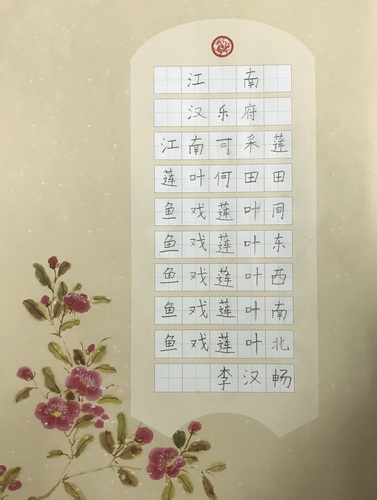 江南
汉乐府
江南可采莲
莲叶何田田
鱼戏莲叶间
鱼戏莲叶东
鱼戏莲叶西
鱼戏莲叶南
鱼戏莲叶北
李汉畅